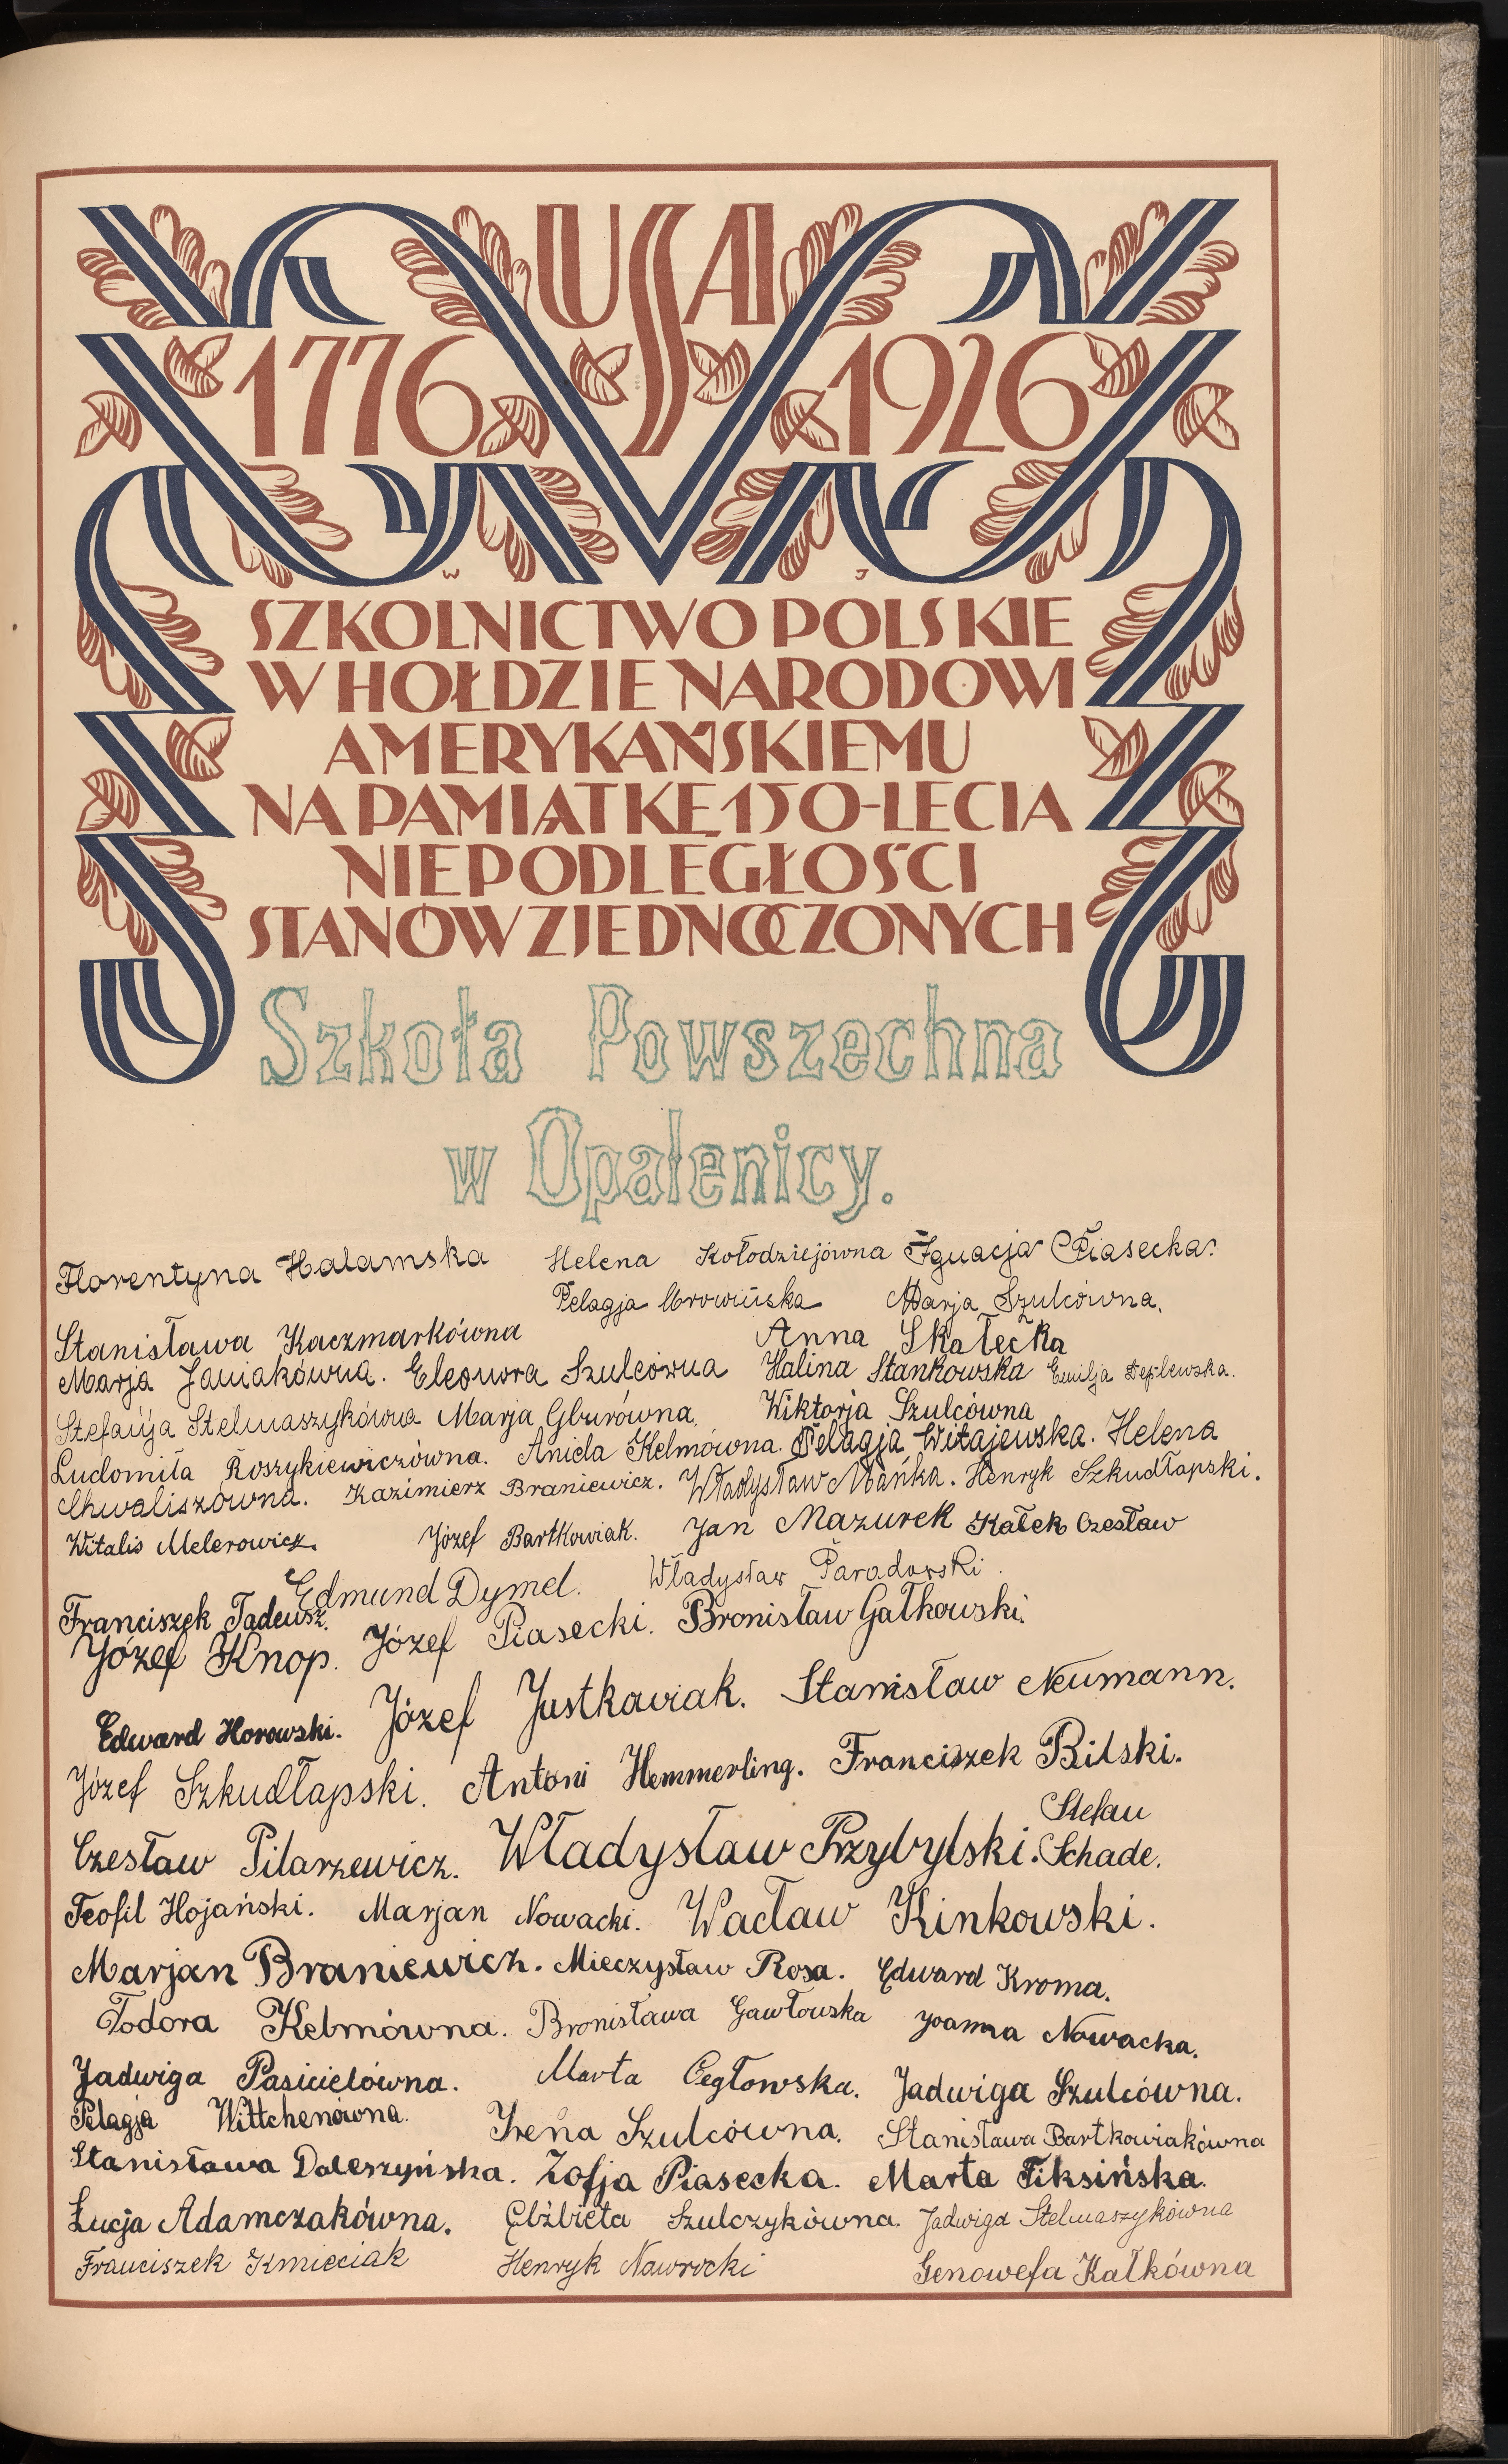 USA
1776 1926
W J
SZKOLNICTWO POLSKIE
W HOŁDZIE NARODOWI
AMERYKAŃSKIEMU
NA PAMIĄTKĘ 150-LECIA
NIEPODLEGŁOŚCI
STANÓW ZJEDNOCZONYCH
Szkoła Powszechna
w Opalenicy.
Florentyna Halamska Helena Kołodziejówna Ignacja Piasecka.
Pelagja Mrowińska Marja Szulcówna.
Stanisława Kaczmarkówna Anna Skałecka
Marja Janiakówna. Eleonora Szulcówna Halina Stankowska Emilja
Stefanja Stelmaszykówna Marja Gburówna. Wiktorja Szulcówna
Ludomiła Roszykiewiczówna. Aniela Kelmówna. Pelagja Witajewska. Helena
Chwaliszówna. Kazimierz Braniewicz. Władysław Mańka. Henryk Szkudłapski.
Witalis Melerowicz. Józef Bartkowiak. Jan Mazurek Kałek Czesław
Edmund Dymel. Władysław Paradowski.
Franciszek Tadeusz.
Józef Knop. Józef Piasecki. Bronisław Gałkowski.
Edward Horowski. Józef Justkawiak. Stanisław Neumann.
Józef Szkudłapski. Antoni Hemmerling. Franciszek Bilski.
Stefan
Czesław Pilarzewicz. Władysław Przybylski. Schade.
Teofil Hojański. Marjan Nowacki. Wacław Kinkowski.
Marjan Braniewicz. Mieczysław Rosa. Edward Kroma.
Todora Kelmówna. Bronisława Gawłowska Joanna Nowacka.
Jadwiga Pasicielówna. Marta Cegłowska. Jadwiga Szulcówna.
Pelagja Wittchenówna. Irena Szulcówna. Stanisława Bartkowiakówna
Stanisława Doleszyńska. Zofja Piasecka. Marta Fiksińska.
Łucja Adamczakówna. Elżbieta Szulczykówna. Jadwiga Stelmaszykówna
Franciszek Kmieciak Henryk Nawrocki Genowefa Kałkówna